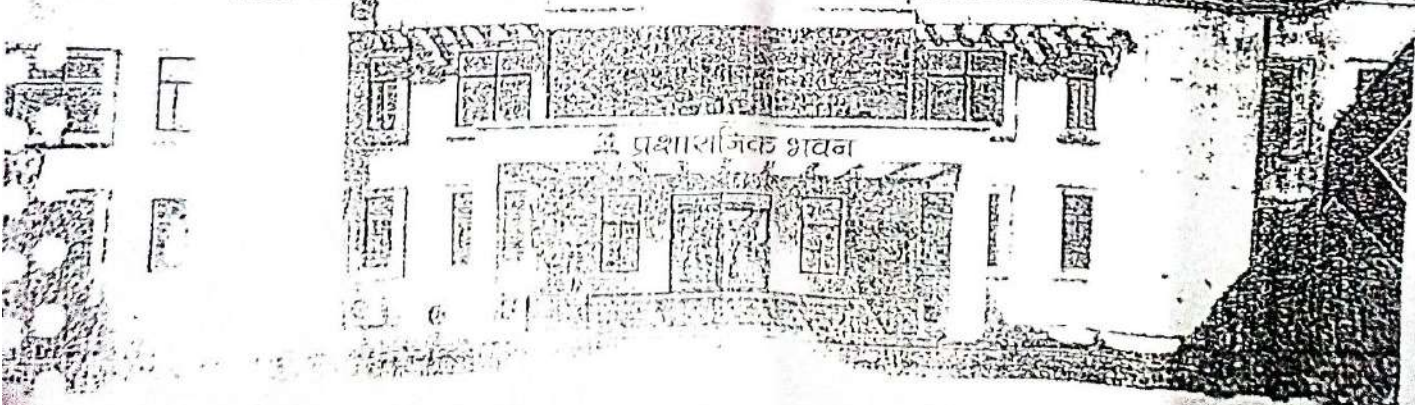 प्रशासनिक भवन